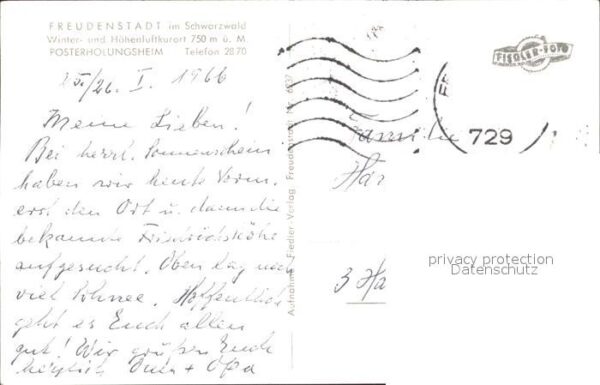 FREUDENSTADT im Schwarzwald
Winter- und Höhenluftkurort 750 m ü. M.
POSTERHOLUNGSHEIM Telefon 2870
25./26. I. 1966
Meine Lieben!
Bei herrl. Sonnenschein
haben wir heute Vorm.
erst den Ort u. dann die
bekannte Friedrichshöhe
aufgesucht. Oben lag noch
viel Schnee. Hoffentlich
geht es Euch allen
gut! Wir grüßen Euch
herzlich Omi + Opa
Aufnahme Fiedler-Verlag Freudenstadt Nr.
FIEDLER-FOTO
FR
729
Familie
Har
3 Ha
privacy protection
Datenschutz